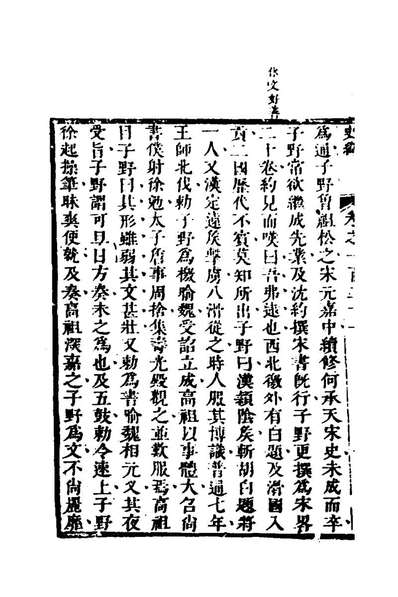 爲通子野曾祖松之宋元嘉中續修何承天宋史未成而卒
子野常欲繼成先業及沈約撰宋書旣行子野更撰爲宋畧
二十卷約見而嘆曰吾弗逮也西北徼外有白題及滑國入
貢二國歷代不賓莫知所出子野曰漢潁陰矦斬胡白題將
一人又漢定遠矦擊虜八滑從之時人服其博識普通七年
王師北伐勅子野爲檄喻魏受詔立成高祖以事體大召尚
書僕射徐勉太子詹事周捨集壽光殿觀之並歎服焉高祖
目子野曰其形雖弱其文甚壯又勅爲書喻魏相元乂其夜
受旨子野謂可旦日方奏未之爲也及五鼓勅令速上子野
徐起操筆昧爽便就及奏高祖深嘉之子野爲文不尚麗靡